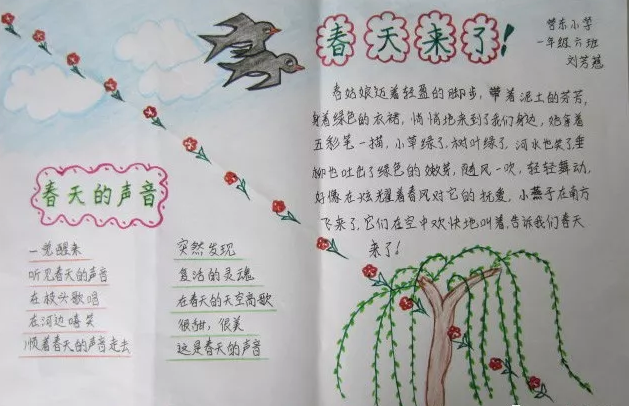 春天的声音
一觉醒来
听见春天的声音
在枝头歌唱
在河边嘻笑
顺着春天的声音走去
突然发现
复活的灵魂
在春天的天空高歌
很甜，很美
这是春天的声音
春天来了！
营东小学
一年级六班
刘芳慈
春姑娘迈着轻盈的脚步，带着泥土的芬芳，
身着绿色的衣裙，悄悄地来到了我们身边，她拿着
五彩笔一描，小草绿了，树叶绿了，河水也笑了垂
柳也吐出了绿色的嫩芽，随风一吹，轻轻舞动，
好像在炫耀着春风对它的抚爱，小燕子在南方
飞来了，它们在空中欢快地叫着，告诉我们春天
来了！